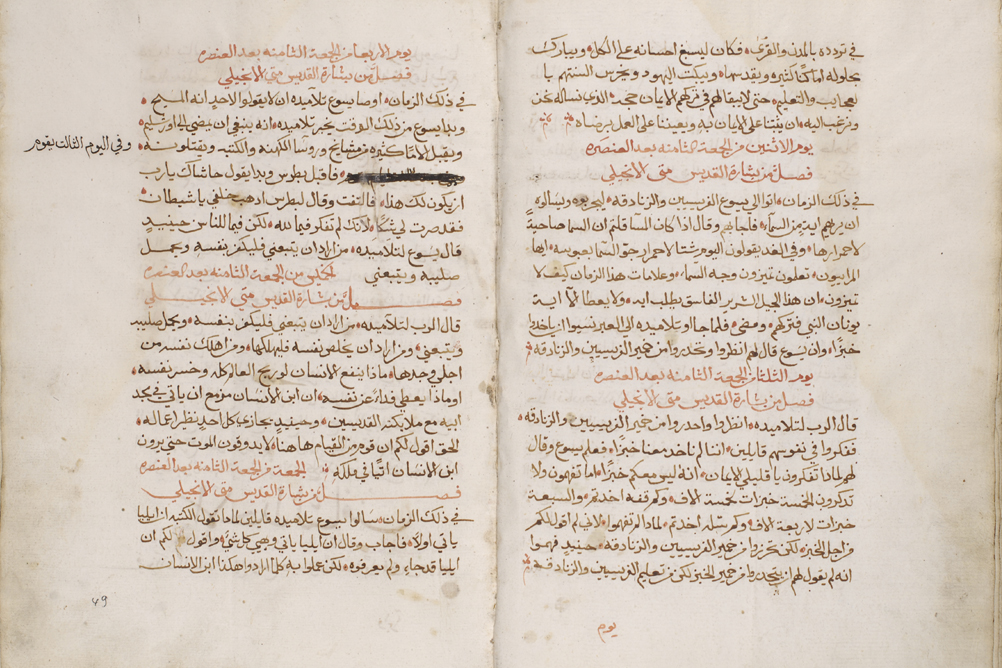 في تردده بالمدن والقرى، فكان ليسبغ احسانه على الكل، ويبارك
بحلوله اماكنا كثيره ويقدسها، ويبكت اليهود ويخرس السنتهم با
لعجايب والتعليم، حتى لا يبقا لهم في تركهم الايمان حجه، الذي نساله نحن
ونرغب اليه، ان يثبتنا على الايمان به ويعيننا على العمل برضاه،
يوم الاثنين من الجمعة الثامنه بعد العنصره
فصل من بشارة القديس متى الانجيلي
في ذلك الزمان، اتوا الى يسوع الفريسيين والزنادقه، ليجربوه ويسالوه
ان يريهم ايه من السماء، فاجابهم وقال اذا كان المسا قلتم ان السما صاحية
لاحمرارها، وفي الغد تقولون اليوم شتا لاحمرار جو السما بعبوسه، ايها
المرايبون، تعلمون تميزون وجه السماء، وعلامات هذا الزمان كيف لا
تميزون، ان هذا الجيل الشرير الفاسق يطلب ايه، ولا يعطا الا اية
يونان النبي فتركهم، ومضى، فلما جاو تلاميذه الى العبر نسيوا ان ياخذوا
خبزا، وان يسوع قال لهم انظروا وتحذروا من خمير الفريسيين والزنادقه
يوم الثلثا من الجمعة الثامنه بعد العنصره
فصل من بشارة القديس متى الانجيلي
قال الرب لتلاميذه، انظروا واحذروا من خمير الفريسيين والزنادقه
ففكروا في نفوسهم قايلين، اننا لم ناخذ معنا خبزا، فعلم يسوع وقال
لهم لماذا تفكرون يا قليلي الايمان، انه ليس معكم خبزا، اما تفهمون ولا
تذكرون الخمسة خبزات لخمسة الاف، وكم قفه اخذتم، والسبعة
خبزات لاربعة الاف، وكم سله اخذتم، لماذا لم تفهموا، لاني لم اقول لكم
من اجل الخبز، لكن تحرزوا من خمير الفريسيين والزنادقه، حينيذ فهموا
انه لم يقول لهم ان يتحذروا من خمير الخبز لكن من تعليم الفريسيين والزنادقه
يوم
يوم الاربعا من الجمعة الثامنه بعد العنصره
فصل من بشارة القديس متى الانجيلي
في ذلك الزمان، اوصا يسوع تلاميذه ان لا يقولوا لاحد انه المسيح،
وبدا يسوع من ذلك الوقت يخبر تلاميذه، انه ينبغي ان يمضي الى اورشليم،
ويقبل الاما كثيره من مشايخ وروسا الكهنه والكتبه، ويقتلونه،
وفي اليوم الثالث يقوم
فاقبل بطرس وبدا يقول حاشاك يارب
ان يكون لك هذا، فالتفت وقال لبطرس اذهب خلفي يا شيطان
فقد صرت لي شكا، لانك لم تفكر فيما لله، لكن فيما للناس حينيذ
قال يسوع لتلاميذه، من اراد ان يتبعني فليكفر بنفسه ويحمل
صليبه ويتبعني الخميس من الجمعة الثامنه بعد العنصره
فصل من بشارة القديس متى الانجيلي
قال الرب لتلاميذه، من اراد ان يتبعني فليكفر بنفسه، ويحمل صليبه
ويتبعني، ومن اراد ان يخلص نفسه فليهلكها، ومن اهلك نفسه من
اجلي وجدها، ماذا ينفع الانسان لو ربح العالم كله، وخسر نفسه،
او ماذا يعطي فدا عن نفسه، ان ابن الانسان مزمع ان ياتي في مجد
ابيه مع ملايكته القديسين، وحينيذ يجازي كل احد بنظر اعماله،
الحق اقول لكم ان قوم من القيام هاهنا، لا يذوقون الموت حتى يرون
ابن الانسان اتيا في ملكه الجمعة من الجمعة الثامنه بعد العنصره
فصل من بشارة القديس متى الانجيلي
في ذلك الزمان، سالوا يسوع تلاميذه قايلين لماذا تقول الكتبه ان ايليا
ياتي اولا، فاجاب وقال ان ايليا ياتي ويهي كل شي، واقول لكم ان
ايليا قد جاء ولم يعرفوه، لكن عملوا به كلما ارادوا هكذا ابن الانسان
49